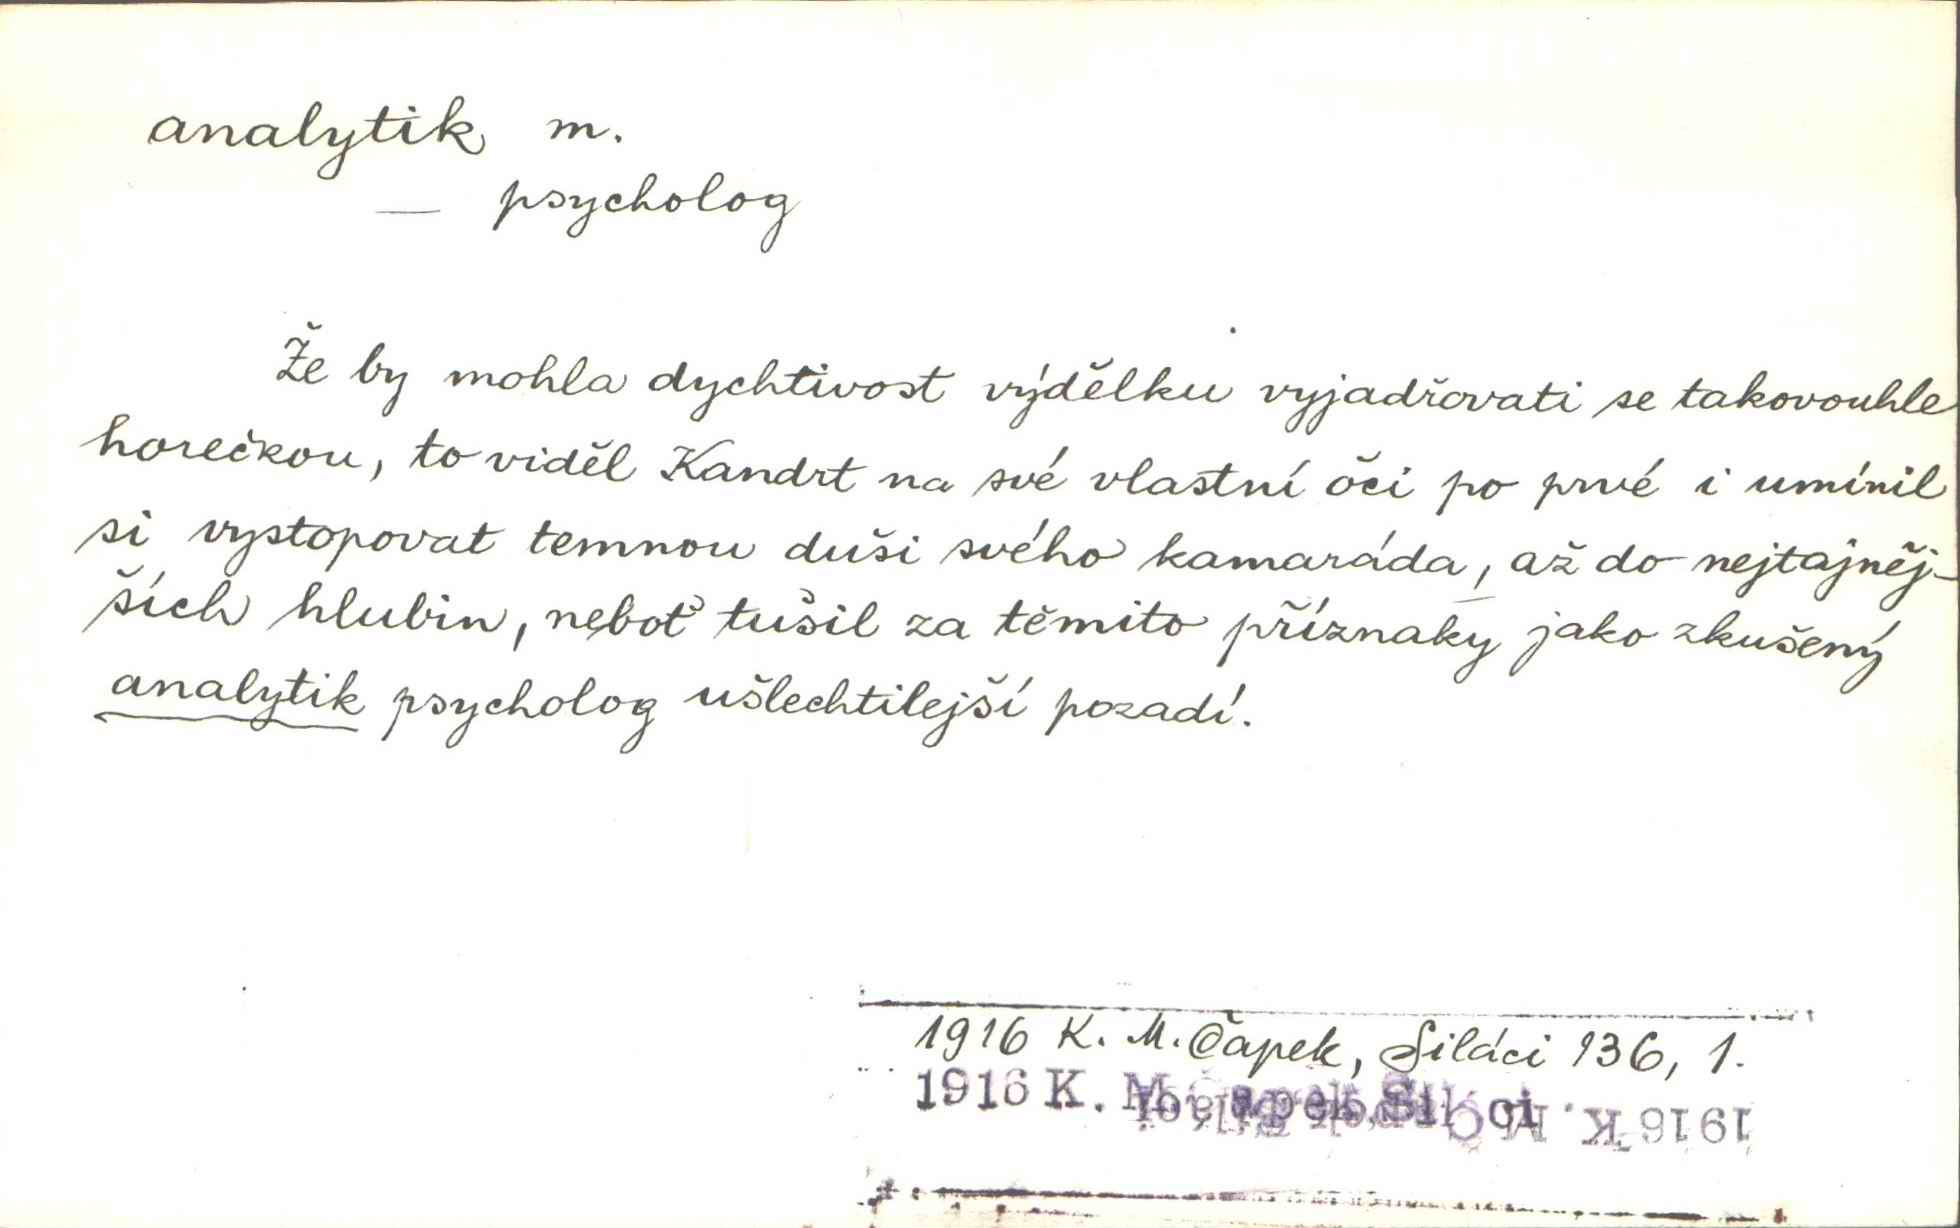 analytik m.
— psycholog
Že by mohla dychtivost výdělku vyjadřovati se takovouhle
horečkou, to viděl Kandrt na své vlastní oči po prvé i umínil
si vystopovat temnou duši svého kamaráda, až do nejtajněj-
ších hlubin, neboť tušil za těmito příznaky jako zkušený
analytik psycholog ušlechtilejší pozadí.
1916 K. M. Čapek, Siláci 136, 1.
1916 K. M.
1916 K. M.